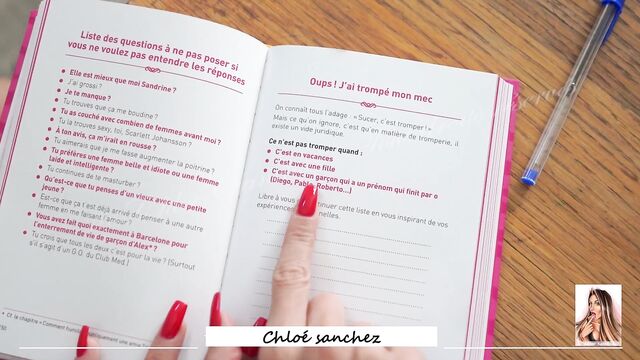 Liste des questions à ne pas poser si
vous ne voulez pas entendre les réponses
Elle est mieux que moi Sandrine ?
J'ai grossi ?
Je te manque ?
Tu trouves que ça me boudine ?
Tu as couché avec combien de femmes avant moi ?
Tu la trouves sexy, toi, Scarlett Johansson ?
À ton avis, ça m'irait en rousse ?
Tu aimerais que je me fasse augmenter la poitrine ?
Tu préfères une femme belle et idiote ou une femme
laide et intelligente ?
Tu continues de te masturber ?
Qu'est-ce que tu penses d'un vieux avec une petite
jeune ?
Est-ce que ça t'est déjà arrivé de penser à une autre
femme en me faisant l'amour ?
Vous avez fait quoi exactement à Barcelone pour
l'enterrement de vie de garçon d'Alex* ?
Tu crois que tous les deux c'est pour la vie ? (Surtout
s'il s'agit d'un G.O. du Club Med.)
* Cf. le chapitre « Comment
Oups ! J'ai trompé mon mec
On connaît tous l'adage : « Sucer, c'est tromper ! »
Mais ce qu'on ignore, c'est qu'en matière de tromperie, il
existe un vide juridique.
Ce n'est pas tromper quand :
C'est en vacances
C'est avec une fille
C'est avec un garçon qui a un prénom qui finit par o
(Diego, Pablo, Roberto...)
Libre à vous de continuer cette liste en vous inspirant de vos
expériences
Chloé sanchez